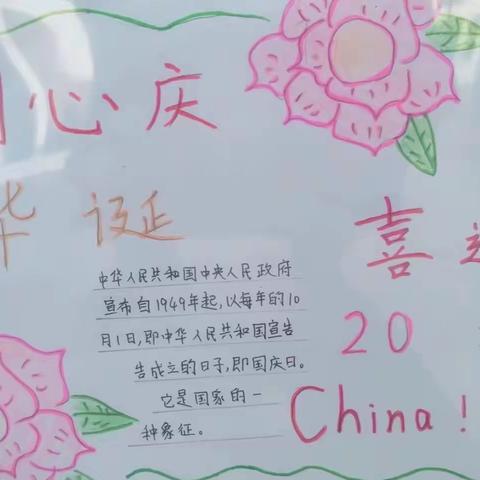 同心庆
华诞
喜迎
20
China!
中华人民共和国中央人民政府
宣布自1949年起,以每年的10
月1日,即中华人民共和国宣告
告成立的日子,即国庆日。
它是国家的一
种象征。